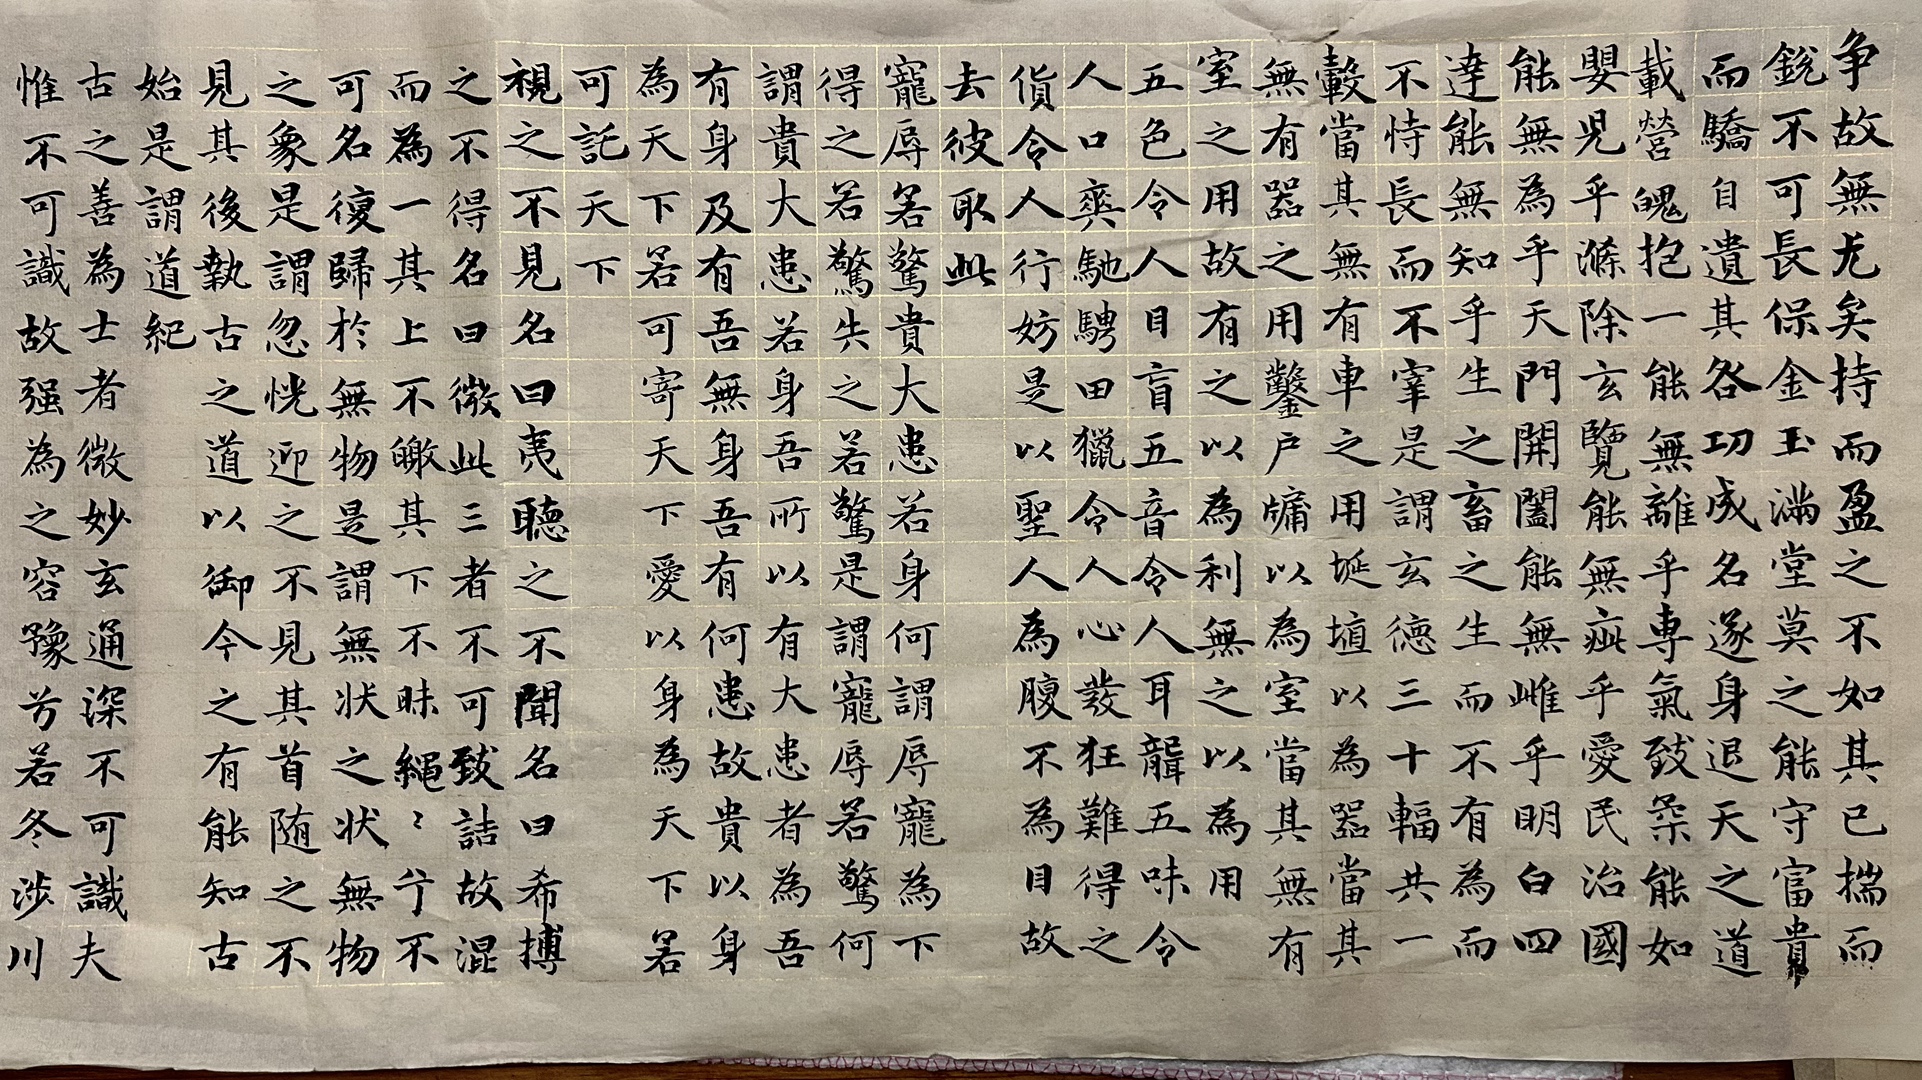 争故無尤矣持而盈之不如其已揣而
銳不可長保金玉滿堂莫之能守富貴
而驕自遺其咎功成名遂身退天之道
載營魄抱一能無離乎專氣致柔能如
嬰兒乎滌除玄覽能無疵乎愛民治國
能無為乎天門開闔能無雌乎明白四
達能無知乎生之畜之生而不有為而
不恃長而不宰是謂玄德三十輻共一
轂當其無有車之用埏埴以為器當其
無有器之用鑿戶牖以為室當其無有
室之用故有之以為利無之以為用
五色令人目盲五音令人耳聾五味令
人口爽馳騁田獵令人心發狂難得之
貨令人行妨是以聖人為腹不為目故
去彼取此
寵辱若驚貴大患若身何謂辱寵為下
得之若驚失之若驚是謂寵辱若驚何
謂貴大患若身吾所以有大患者為吾
有身及有吾無身吾有何患故貴以身
為天下若可寄天下愛以身為天下若
可託天下
視之不見名曰夷聽之不聞名曰希搏
之不得名曰微此三者不可致詰故混
而為一其上不皦其下不昧繩〻兮不
可名復歸於無物是謂無状之状無物
之象是謂忽恍迎之不見其首随之不
見其後執古之道以御今之有能知古
始是謂道紀
古之善為士者微妙玄通深不可識夫
惟不可識故强為之容豫兮若冬涉川